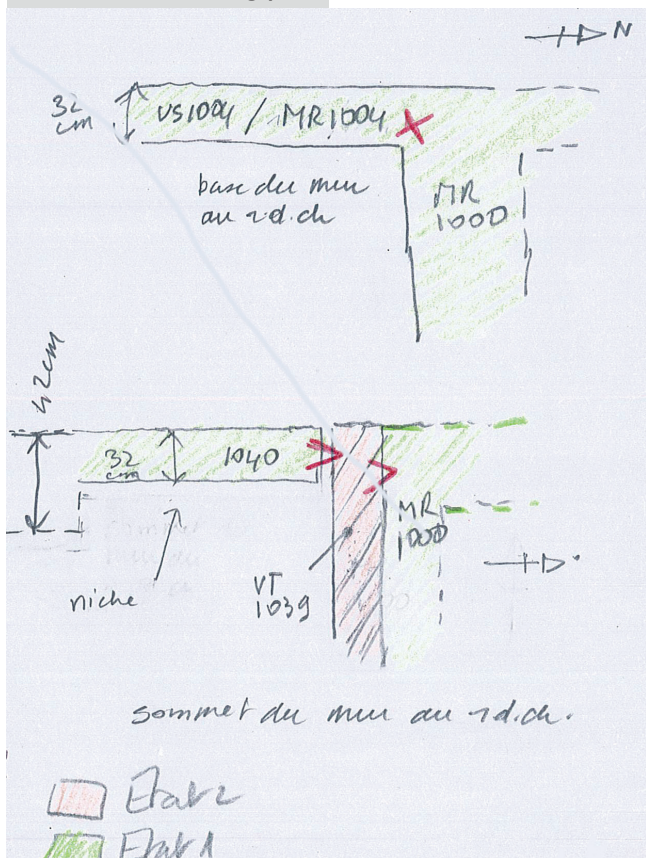 N
32
cm
US1004 / MR1004
base du mur
au r.d.ch
MR
1000
42cm
32
cm
1040
MR
1000
niche
VT
1039
sommet du mur au r.d.ch.
Etat 2
Etat 1